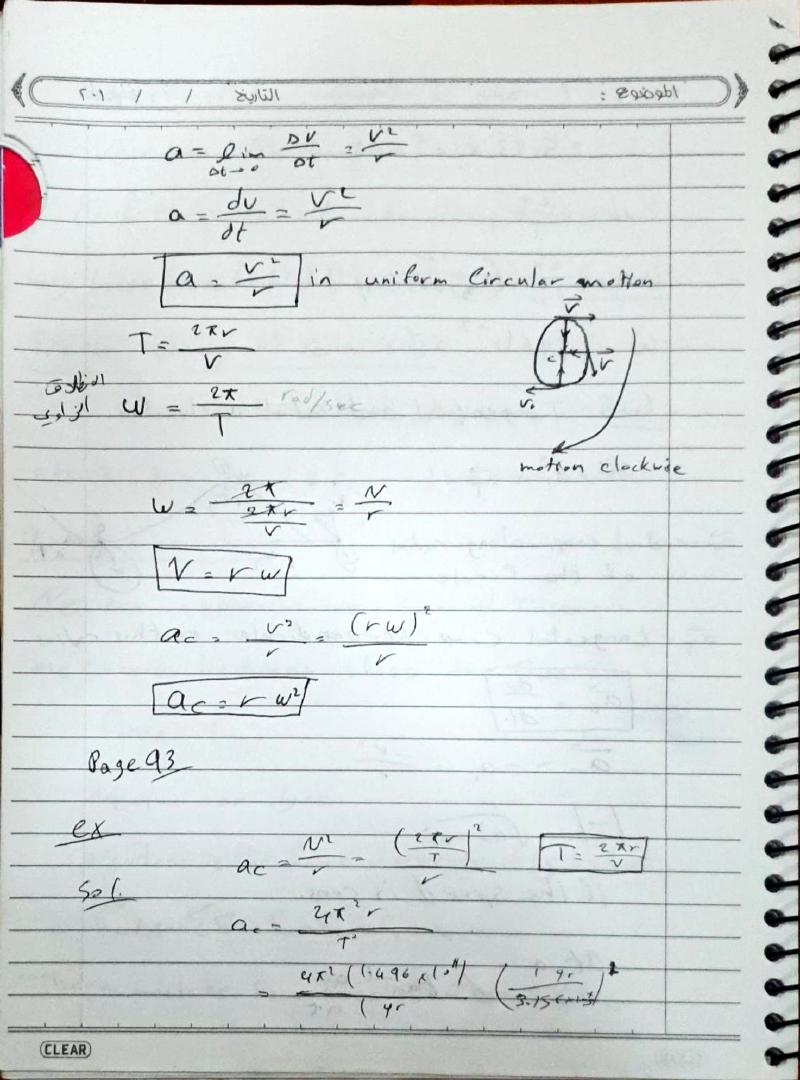 الموضوع : التاريخ / / ٢٠١
a = lim Δt→0 Δv/Δt = v²/r
a = dv/dt = v²/r
a = v²/r in uniform Circular motion
T = 2πr/v
v
c
v
v
ω = 2π/T rad/sec
الزاوي
motion clockwie
ω = 2π/(2πr/v) = v/r
v = rω
ac = v²/r = (rω)²/r
ac = rω²
Page 93
ex
ac = v²/r = (2πr/T)²/r T = 2πr/v
Sol.
ac = 4π²r/T²
= 4π²(1.496×10¹¹)/(1 yr
CLEAR